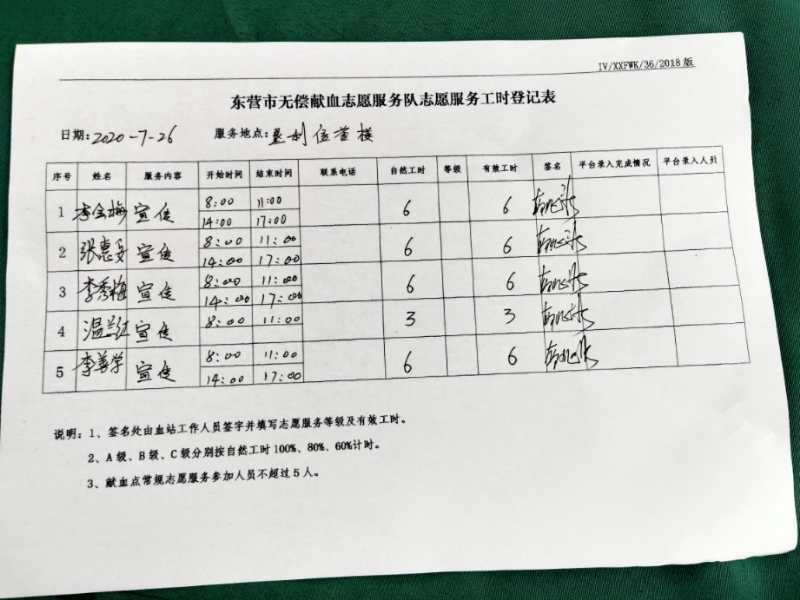 IV/XXFWK/36/2018版
东营市无偿献血志愿服务队志愿服务工时登记表
日期：2020-7-26 服务地点：垦利信誉楼
序号 姓名 服务内容 开始时间 结束时间 联系电话 自然工时 等级 有效工时 签名 平台录入完成情况 平台录入人员
1 李金梅 宣传 8:00 11:00 6 6
14:00 17:00
2 张惠 宣传 8:00 11:00 6 6
14:00 17:00
3 李秀梅 宣传 8:00 11:00 6 6
14:00 17:00
4 温兰红 宣传 8:00 11:00 3 3
5 李善学 宣传 8:00 11:00 6 6
14:00 17:00
说明：1、签名处由血站工作人员签字并填写志愿服务等级及有效工时。
2、A级、B级、C级分别按自然工时100%、80%、60%计时。
3、献血点常规志愿服务参加人员不超过5人。